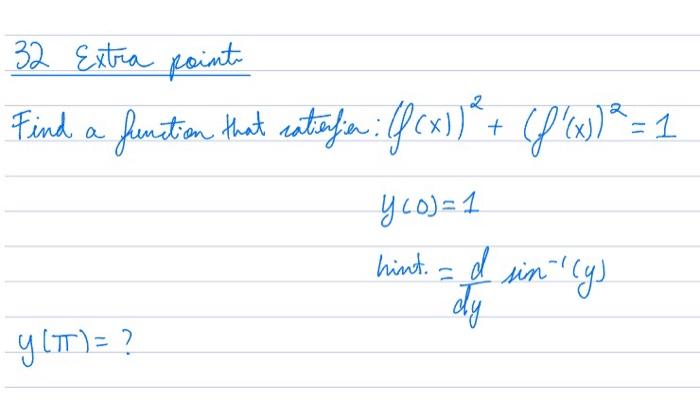 32 Extra points
Find a function that satisfies: (f(x))² + (f'(x))² = 1
y(0) = 1
hint. = d/dy sin⁻¹(y)
y(π) = ?